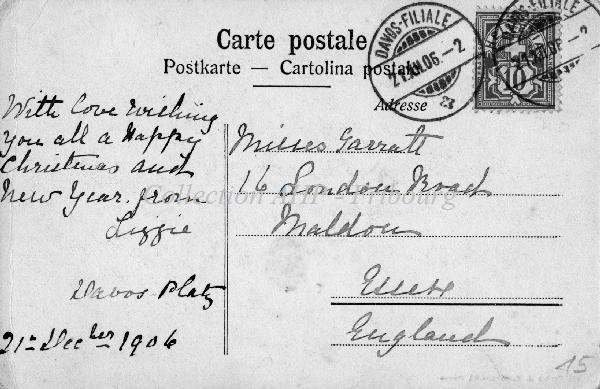 Carte postale
Postkarte — Cartolina postale
Adresse
DAVOS-FILIALE
21.XII.06-2
10
With love wishing
you all a Happy
Christmas and
New Year. from
Lizzie
Davos Platz
21st Decber 1906
Misses Garratt
16 London Road
Maldon
Essex
England
Collection AHP - Fribourg
15